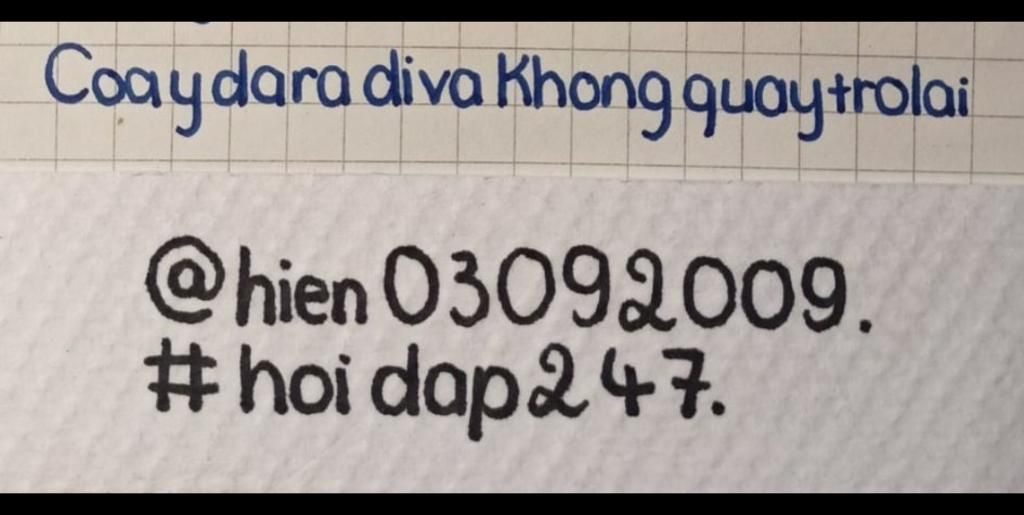 Coaydara diva Khong quaytrolai
@hien03092009.
#hoi dap247.